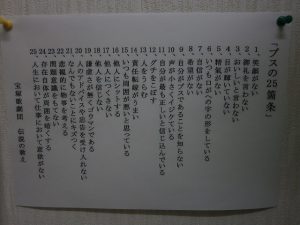 「ブスの25箇条」
1、笑顔がない
2、お礼を言わない
3、おいしいと言わない
4、目が輝いていない
5、精気がない
6、いつも口がへの字の形をしている
7、自信がない
8、希望がない
9、自分がブスであることを知らない
10、声が小さくイジケている
11、自分が最も正しいと信じ込んでいる
12、グチをこぼす
13、人をうらむ
14、責任転嫁がうまい
15、いつも周囲が悪いと思っている
16、他人にシットする
17、他人につくさない
18、他人を信じない
19、謙虚さがなくゴウマンである
20、人のアドバイスや忠告を受け入れない
21、なんでもないことにキズつく
22、悲観的に物事を考える
23、問題意識を持っていない
24、存在自体が周囲を暗くする
25、人生においても仕事においても意欲がない
宝塚歌劇団 伝説の教え